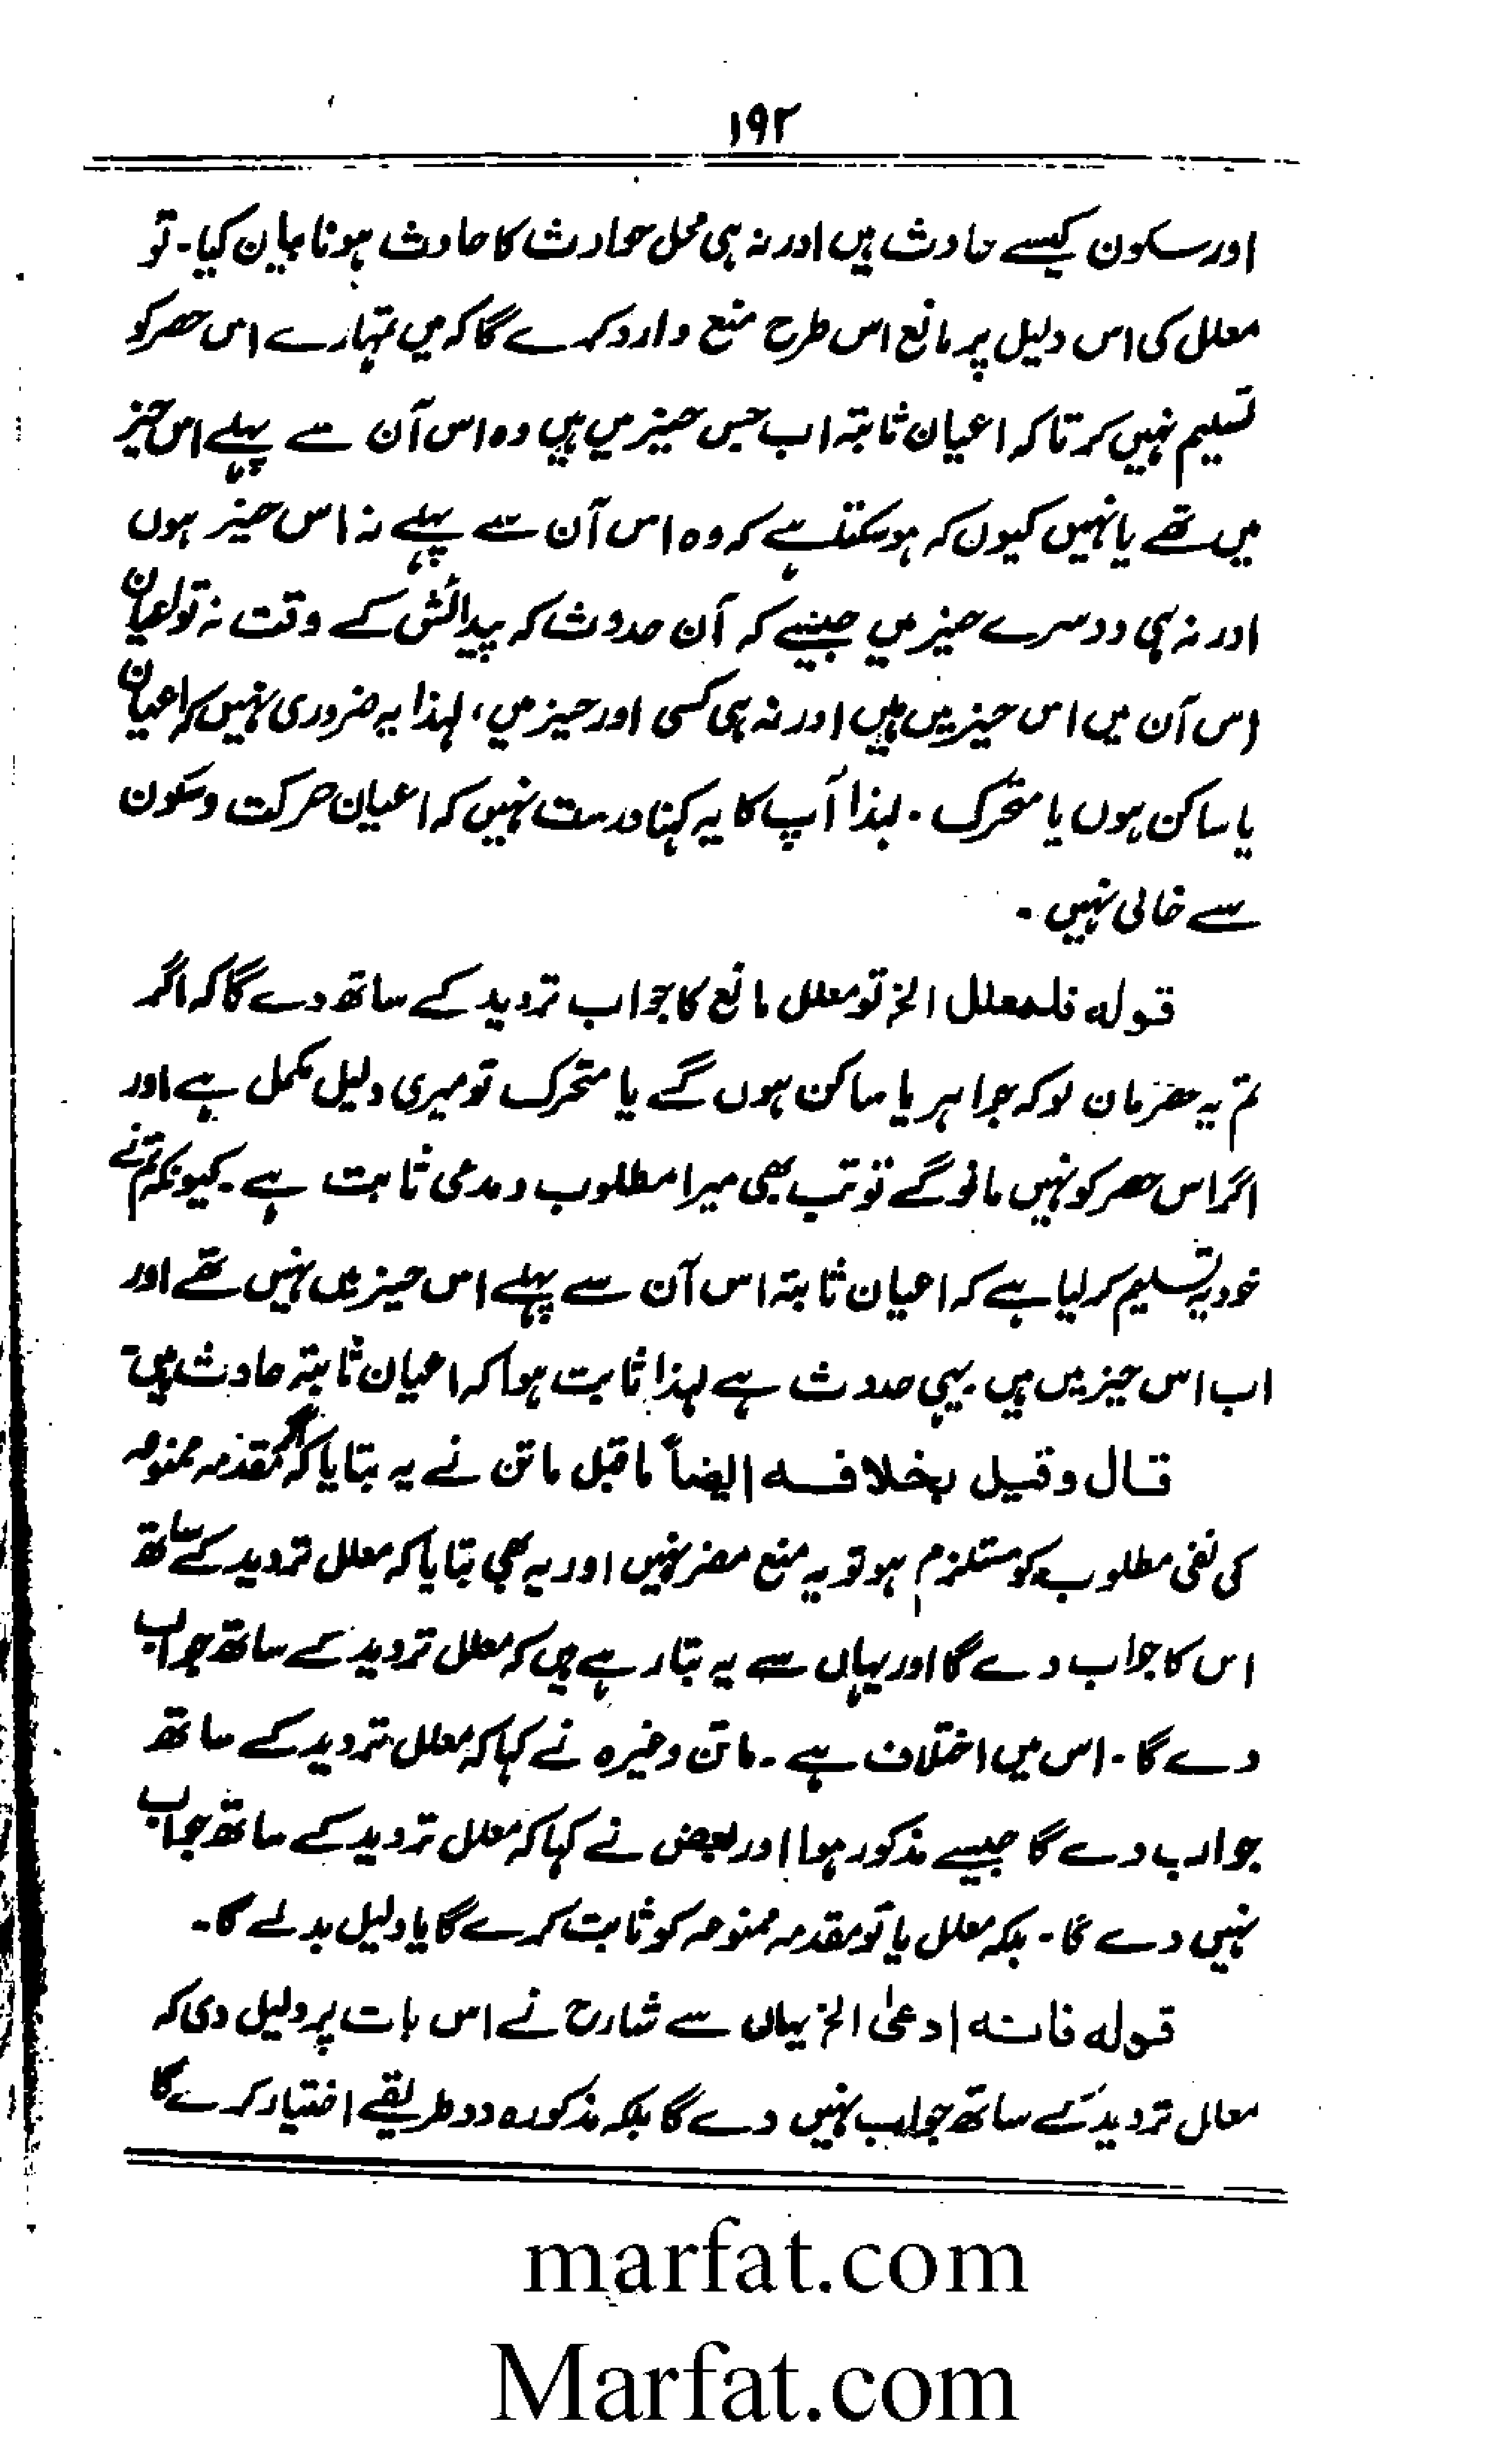 ۱۹۲
اور سکون کیسے حادث ہیں اور نہ ہی محل حوادث کا حادث ہونا بیان کیا۔ تو
معلل کی اس دلیل پر مانع اس طرح منع وارد کرے گا کہ میں تمہارے اس حصر کو
تسلیم نہیں کرتا کہ اعیان ثابتہ اب جس حیز میں ہیں وہ اس آن سے پہلے اس حیز
میں تھے یا نہیں کیوں کہ ہو سکتا ہے کہ وہ اس آن سے پہلے نہ اس حیز ہوں
اور نہ ہی دوسرے حیز میں جیسے کہ آن حدوث کہ پیدائش کے وقت نہ تو اعیان
اس آن میں اس حیز میں ہیں اور نہ ہی کسی اور حیز میں، لہذا یہ ضروری نہیں کہ اعیان
یا ساکن ہوں یا متحرک۔ لہذا آپ کا یہ کہنا درست نہیں کہ اعیان حرکت و سکون
سے خالی نہیں۔
قولہ فلمعلل الخ تو معلل مانع کا جواب تردید کے ساتھ دے گا کہ اگر
تم یہ حصر مان لو کہ جواہر یا ساکن ہوں گے یا متحرک تو میری دلیل مکمل ہے اور
اگر اس حصر کو نہیں مانو گے تو تب بھی میرا مطلوب و مدعی ثابت ہے۔ کیونکہ تم نے
خود یہ تسلیم کر لیا ہے کہ اعیان ثابتہ اس آن سے پہلے اس حیز میں نہیں تھے اور
اب اس حیز میں ہیں یہی حدوث ہے لہذا ثابت ہوا کہ اعیان ثابتہ حادث ہیں۔
قال وقیل بخلافہ ایضاً ماقبل ماتن نے یہ بتایا کہ اگر مقدمہ ممنوعہ
کی نفی مطلوب کو مستلزم ہو تو یہ منع مضر نہیں اور یہ بھی بتایا کہ معلل تردید کے ساتھ
اس کا جواب دے گا اور یہاں سے یہ بتا رہے ہیں کہ معلل تردید کے ساتھ جواب
دے گا۔ اس میں اختلاف ہے۔ ماتن وغیرہ نے کہا کہ معلل تردید کے ساتھ
جواب دے گا جیسے مذکور ہوا اور بعض نے کہا کہ معلل تردید کے ساتھ جواب
نہیں دے گا۔ بلکہ معلل یا تو مقدمہ ممنوعہ کو ثابت کرے گا یا دلیل بدلے گا۔
قولہ فانہ ادعیٰ الخ یہاں سے شارح نے اس بات پر دلیل دی کہ
معلل تردید کے ساتھ جواب نہیں دے گا بلکہ مذکورہ دو طریقے اختیار کرے گا
marfat.com
Marfat.com